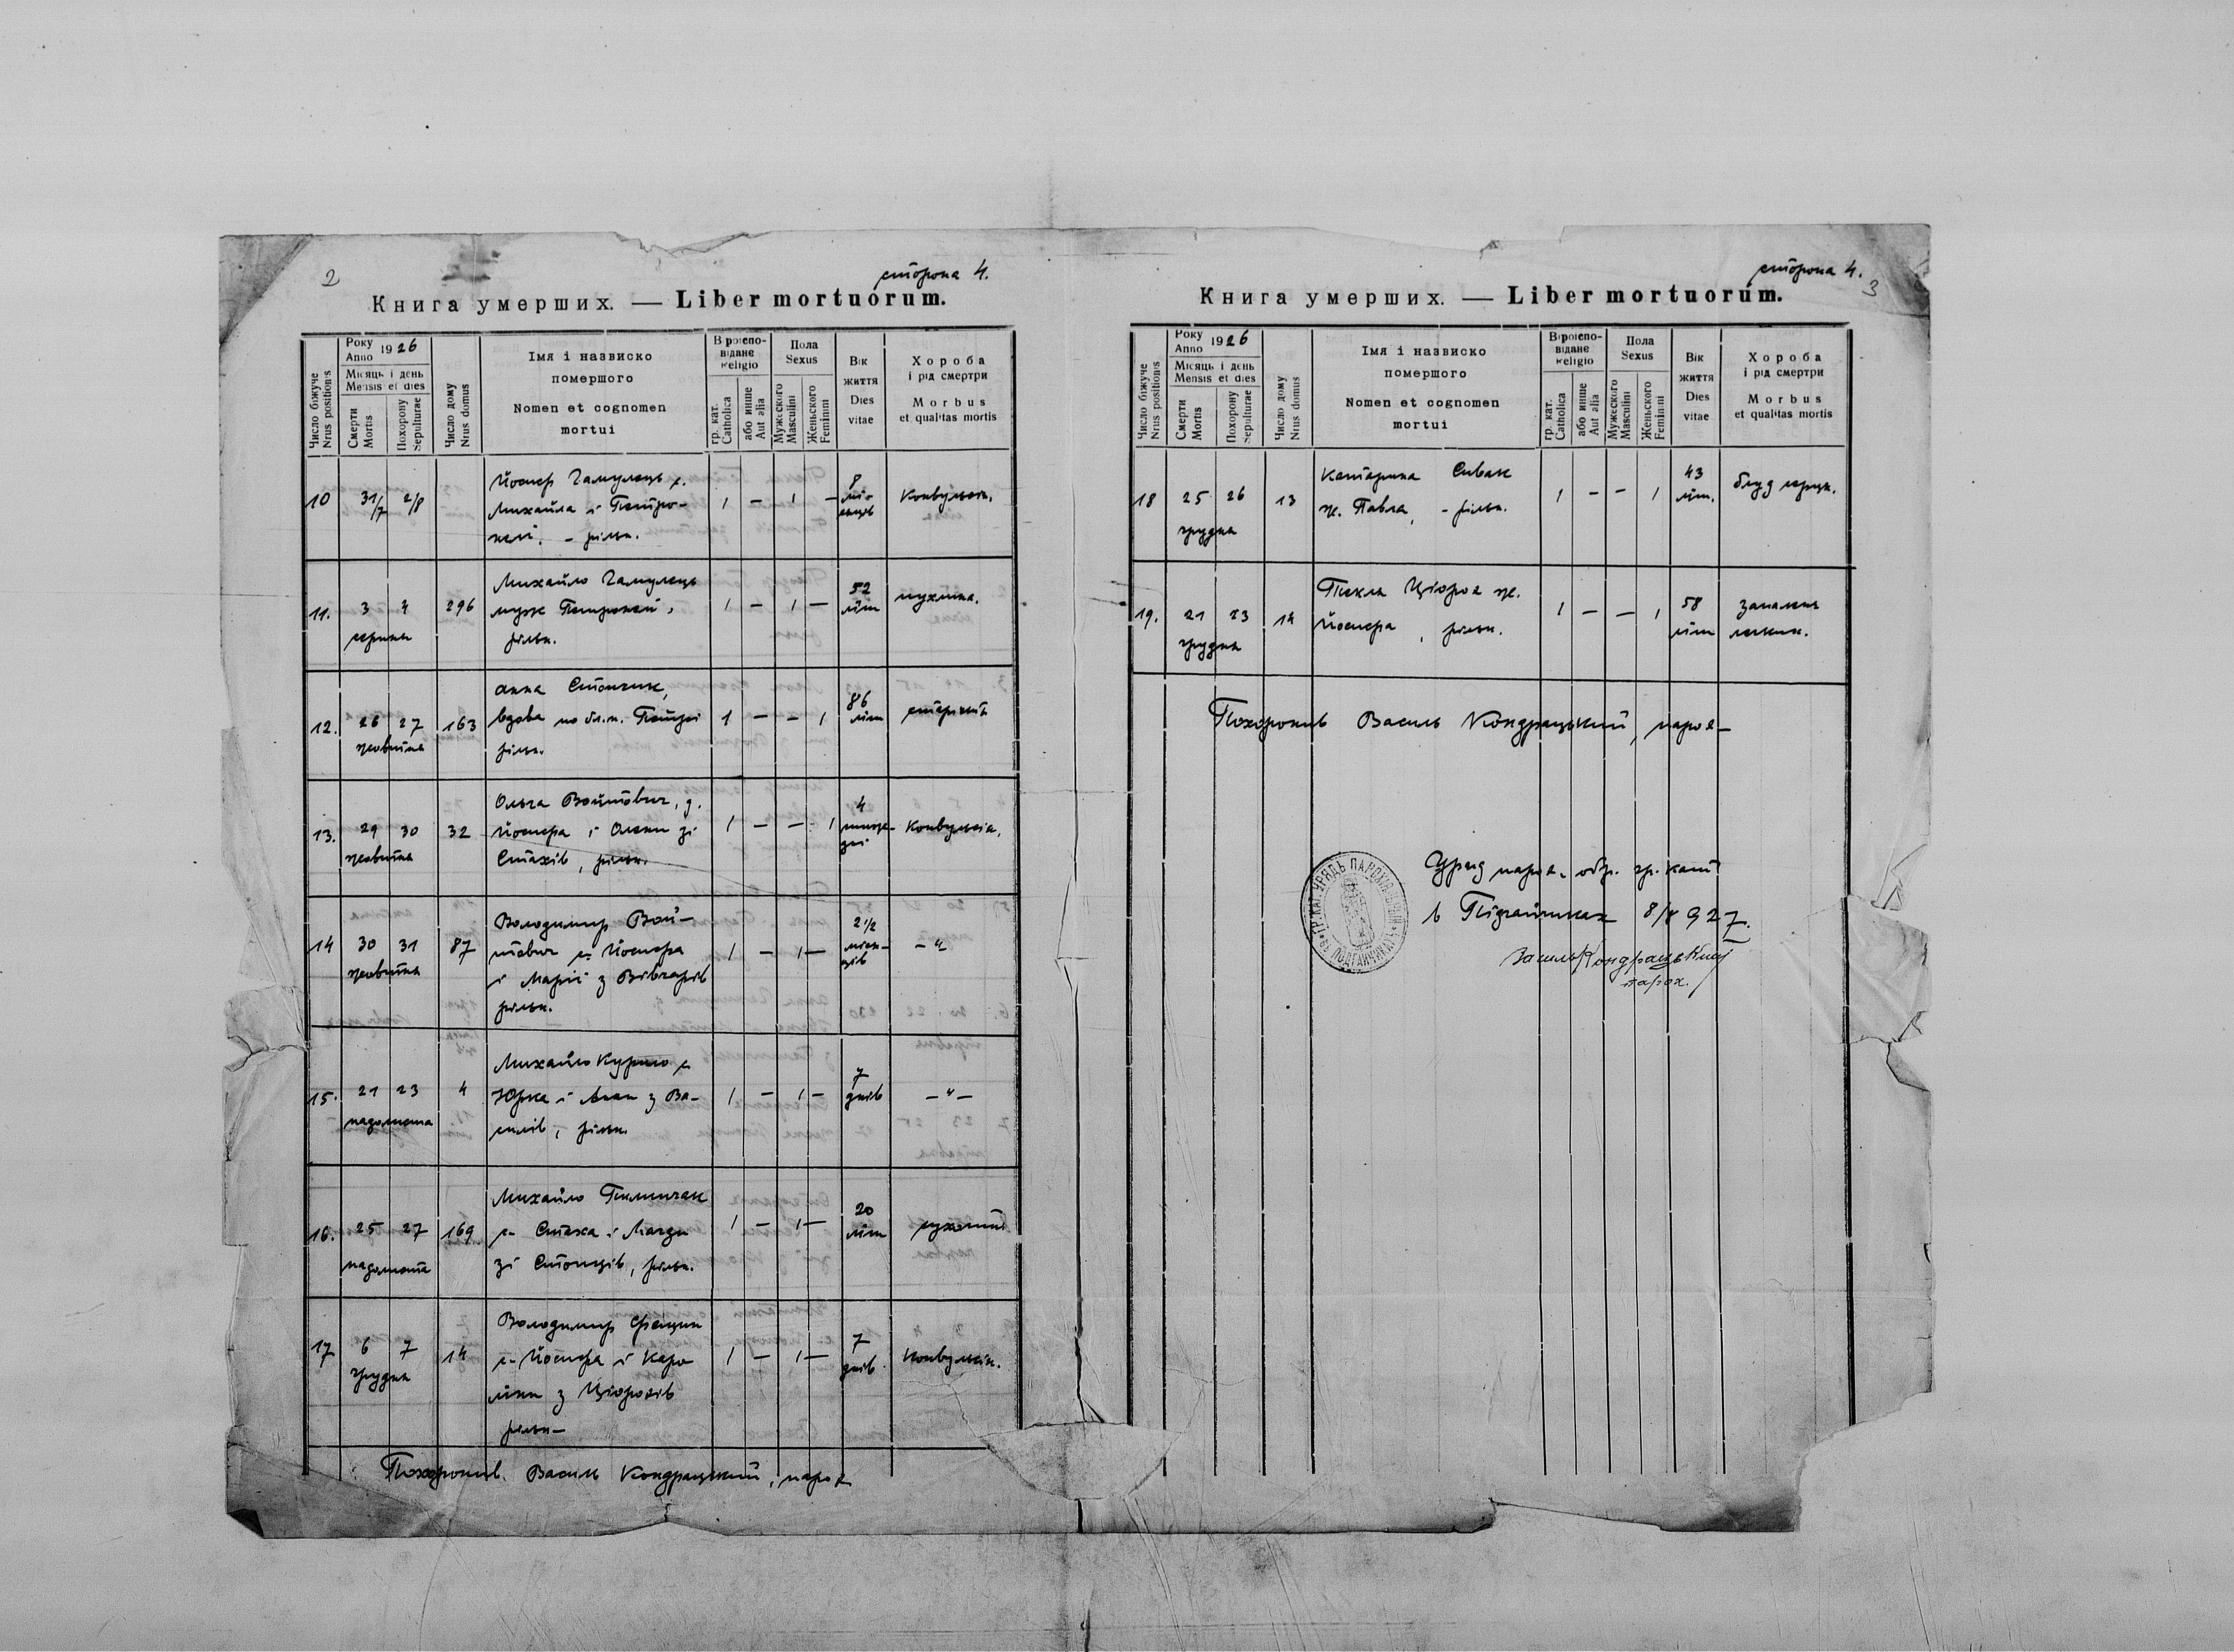 2
сторона 4.
Книга умерших. — Liber mortuorum.
Число біжуче
Nrus positionis
Року
Anno 1926
Місяць і день
Mensis et dies
Смерти
Mortis
Похорону
Sepulturae
Число дому
Nrus domus
Імя і назвиско
помершого
Nomen et cognomen
mortui
Віроіспо-
відане
Religio
гр. кат.
Catholica
або инше
Aut alia
Пола
Sexus
Мужеского
Masculini
Женьского
Feminini
Вік
життя
Dies
vitae
Хороба
і рід смертри
Morbus
et qualitas mortis
10 31/7 2/8 Йосиф Гамулець с. 1 — 1 — 8 Конвульсія.
Михайла і Петро- мі-
нелі. - рільн. сяців
11. 3 4 296 Михайло Гамулець 1 — 1 — 52 пухлина.
серпня муж Петронелі, літ
рільн.
12. 26 27 163 Анна Стончик, 1 — — 1 86
жовтня вдова по бл.п. літ
рільн.
13. 29 30 32 Ольга Войтович, д. 1 — — 1 4 Конвульсія.
жовтня Йосифа і Олени зі
Стахів, рільн.
14 30 31 87 Володимир Вой- 1 — 1 — 2 1/2 — " —
жовтня тович с. Йосифа міся-
і Марії з Вівчарів ців
рільн.
15. 21 23 4 Михайло с. 1 — 1 — 7 — " —
падолиста Юрка і Анни з Ва- днів
силів, рільн.
16. 25 27 169 Михайло 1 — 1 — 20 сухоти
падолиста с. Стаха і Магди літ
зі рільн.
17 6 7 14 Володимир 1 — 1 — 7 Конвульсія.
грудня с. Йосифа і Каро днів.
ліни з Цюрохів
рільн —
Похоронив. Василь Кондрацький, парох
сторона 4.
3
Книга умерших. — Liber mortuorum.
Число біжуче
Nrus positionis
Року
Anno 1926
Місяць і день
Mensis et dies
Смерти
Mortis
Похорону
Sepulturae
Число дому
Nrus domus
Імя і назвиско
помершого
Nomen et cognomen
mortui
Віроіспо-
відане
Religio
гр. кат.
Catholica
або инше
Aut alia
Пола
Sexus
Мужеского
Masculini
Женьского
Feminini
Вік
життя
Dies
vitae
Хороба
і рід смертри
Morbus
et qualitas mortis
18 25 26 13 Катарина Сивак 1 — — 1 43
грудня ж. Павла, - рільн. літ.
19. 21 23 14 Текля ж. 1 — — 1 58 запалення
грудня Йосифа, рільн. літ легких.
Похоронив Василь Кондрацький, парох —
Уряд парох. обр. гр. кат
в Підгайчиках 8/8 927.
Василь Кондрацький
парох.